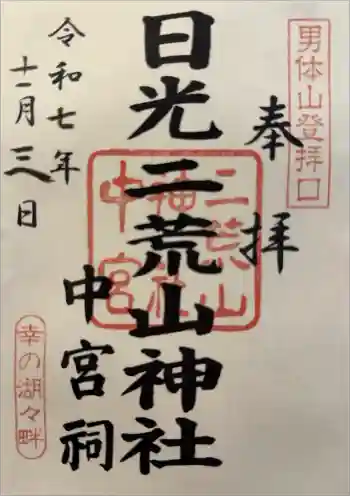 男体山登拝口
奉拝
日光二荒山神社
中宮祠
二荒山
神社
中宮
令和七年
十一月三日
幸の湖々畔